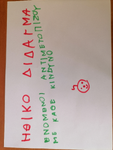 ΗΘΙΚΟ ΔΙΔΑΓΜΑ
ΕΝΩΜΕΝΟΙ ΑΝΤΙΜΕΤΩΠΙΖΟΥ
ΜΕ ΚΑΘΕ ΚΙΝΔΥΝΟ